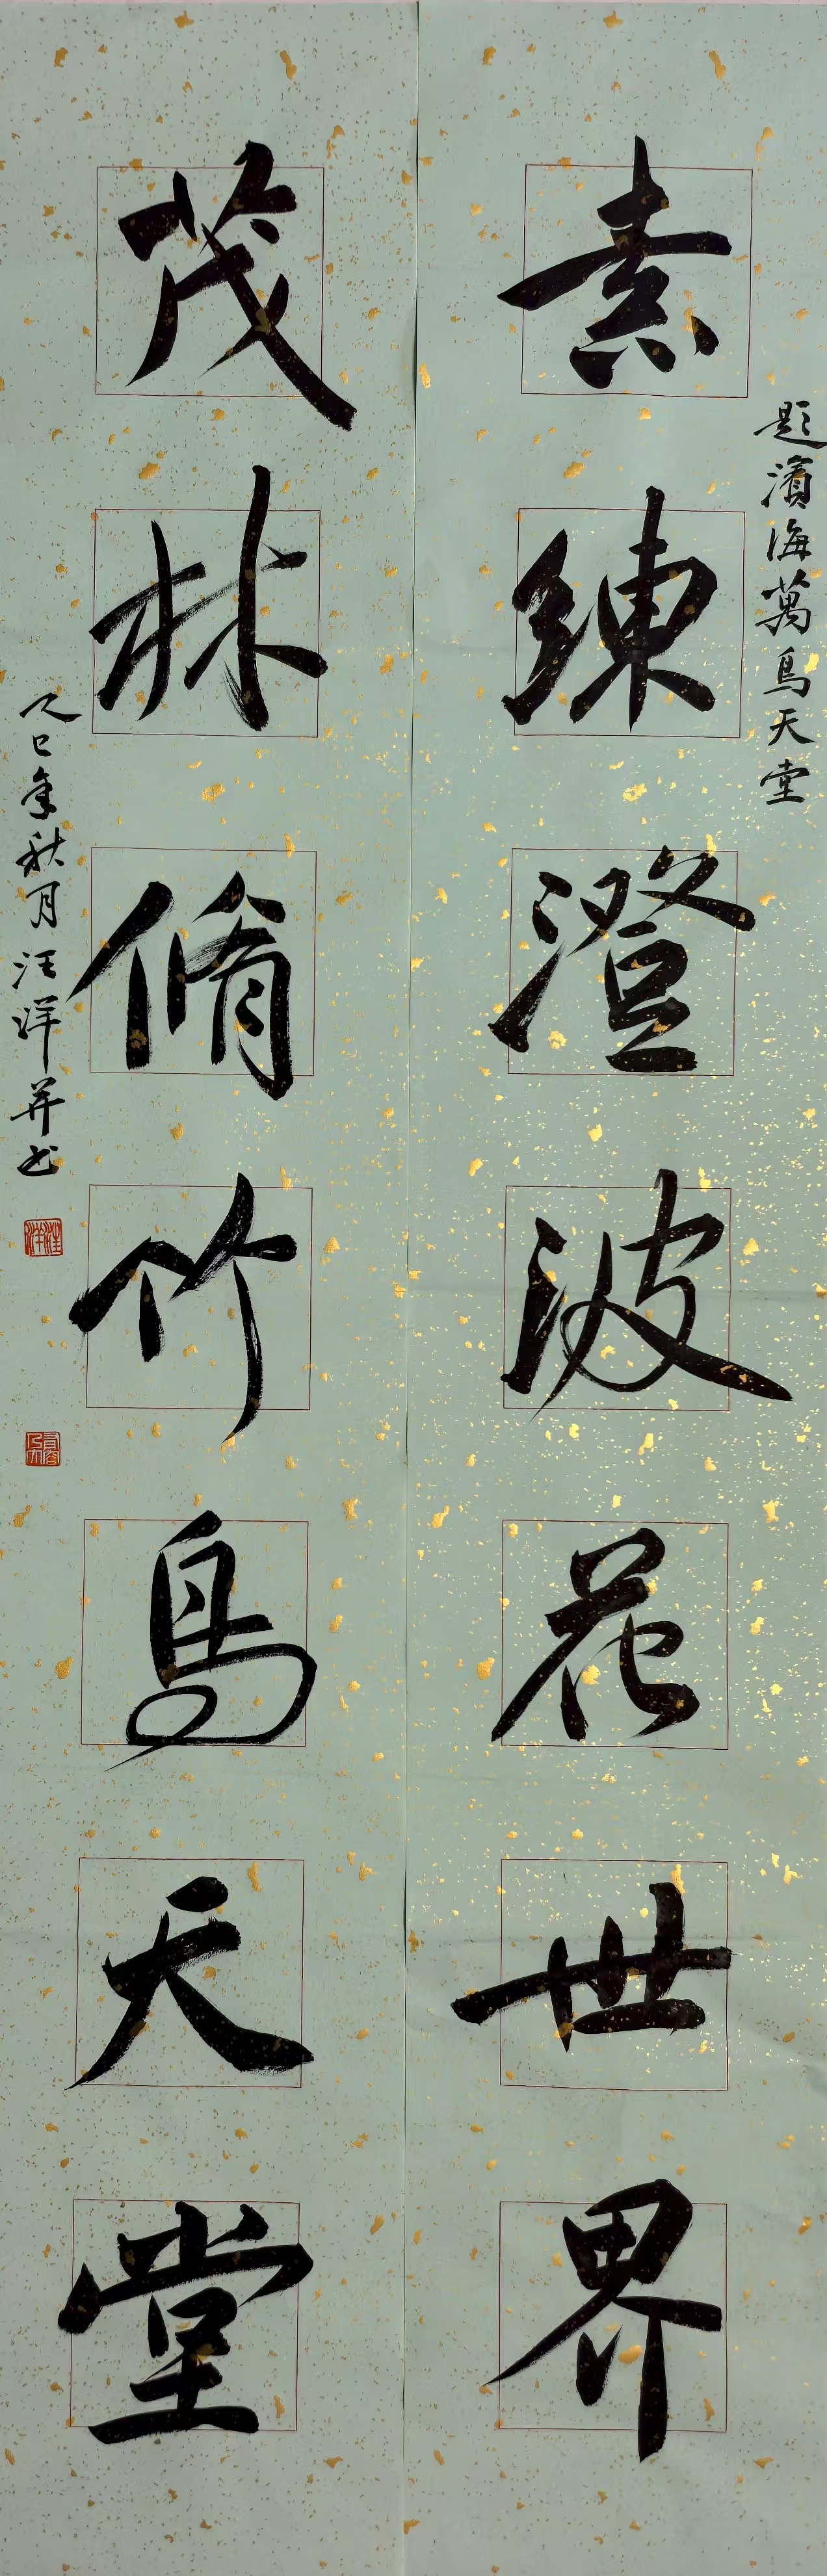 題濱海萬鳥天堂
素練澄波花世界
茂林脩竹鳥天堂
乙巳年秋月汪洋并书
汪洋